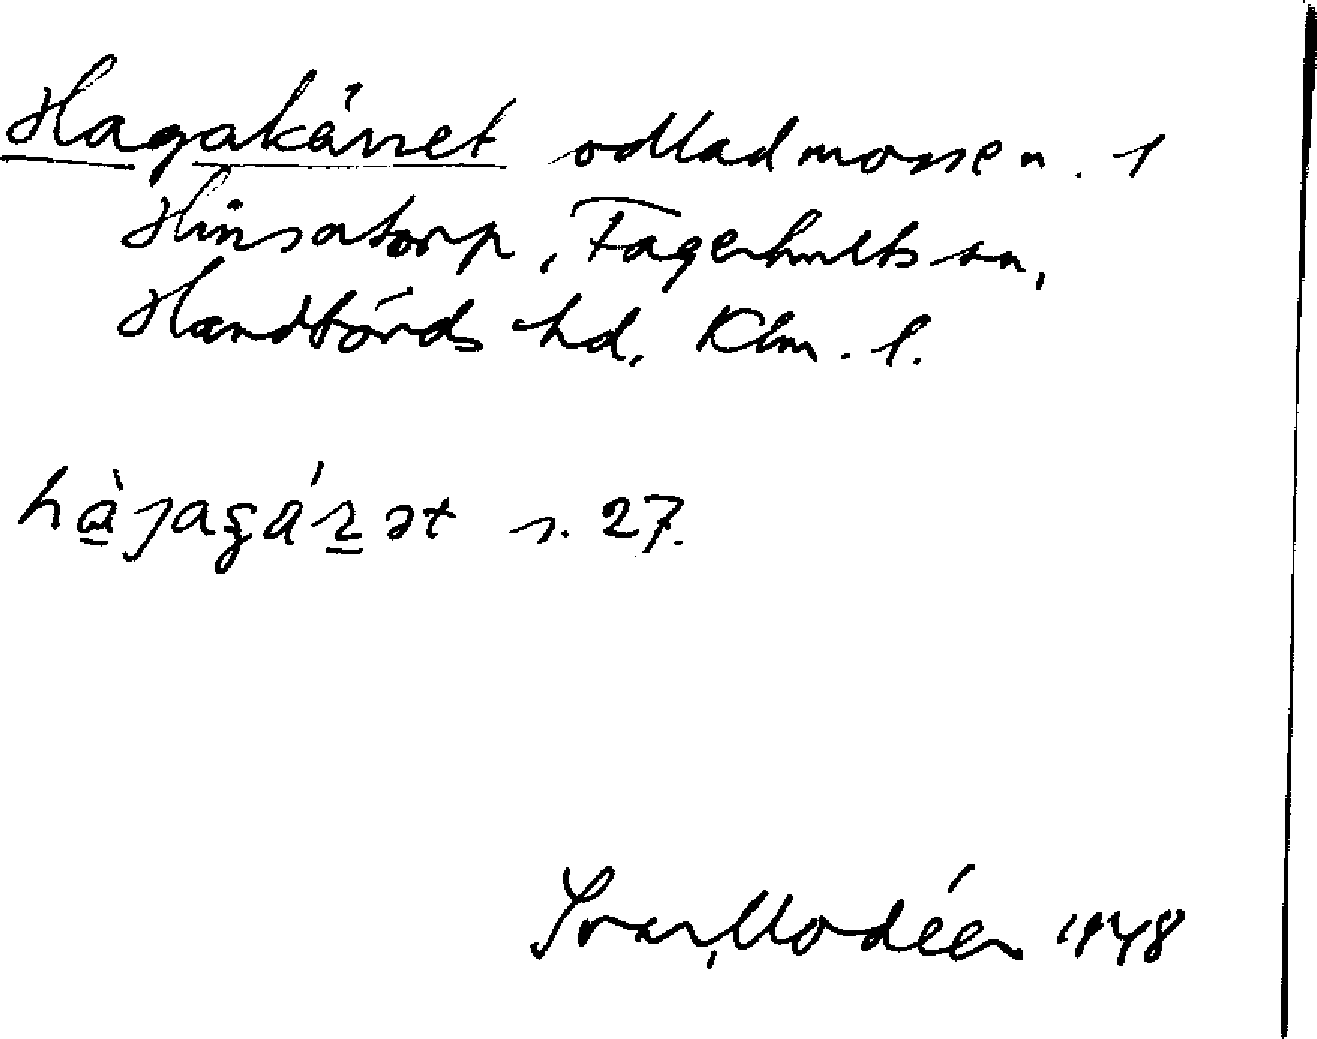 Hagakärret odlad mosse n. 1
Hinsatorp, Fagerhults sn,
Handbörds hd, Klm. l.
s. 27.
Ivar Modéer 1948